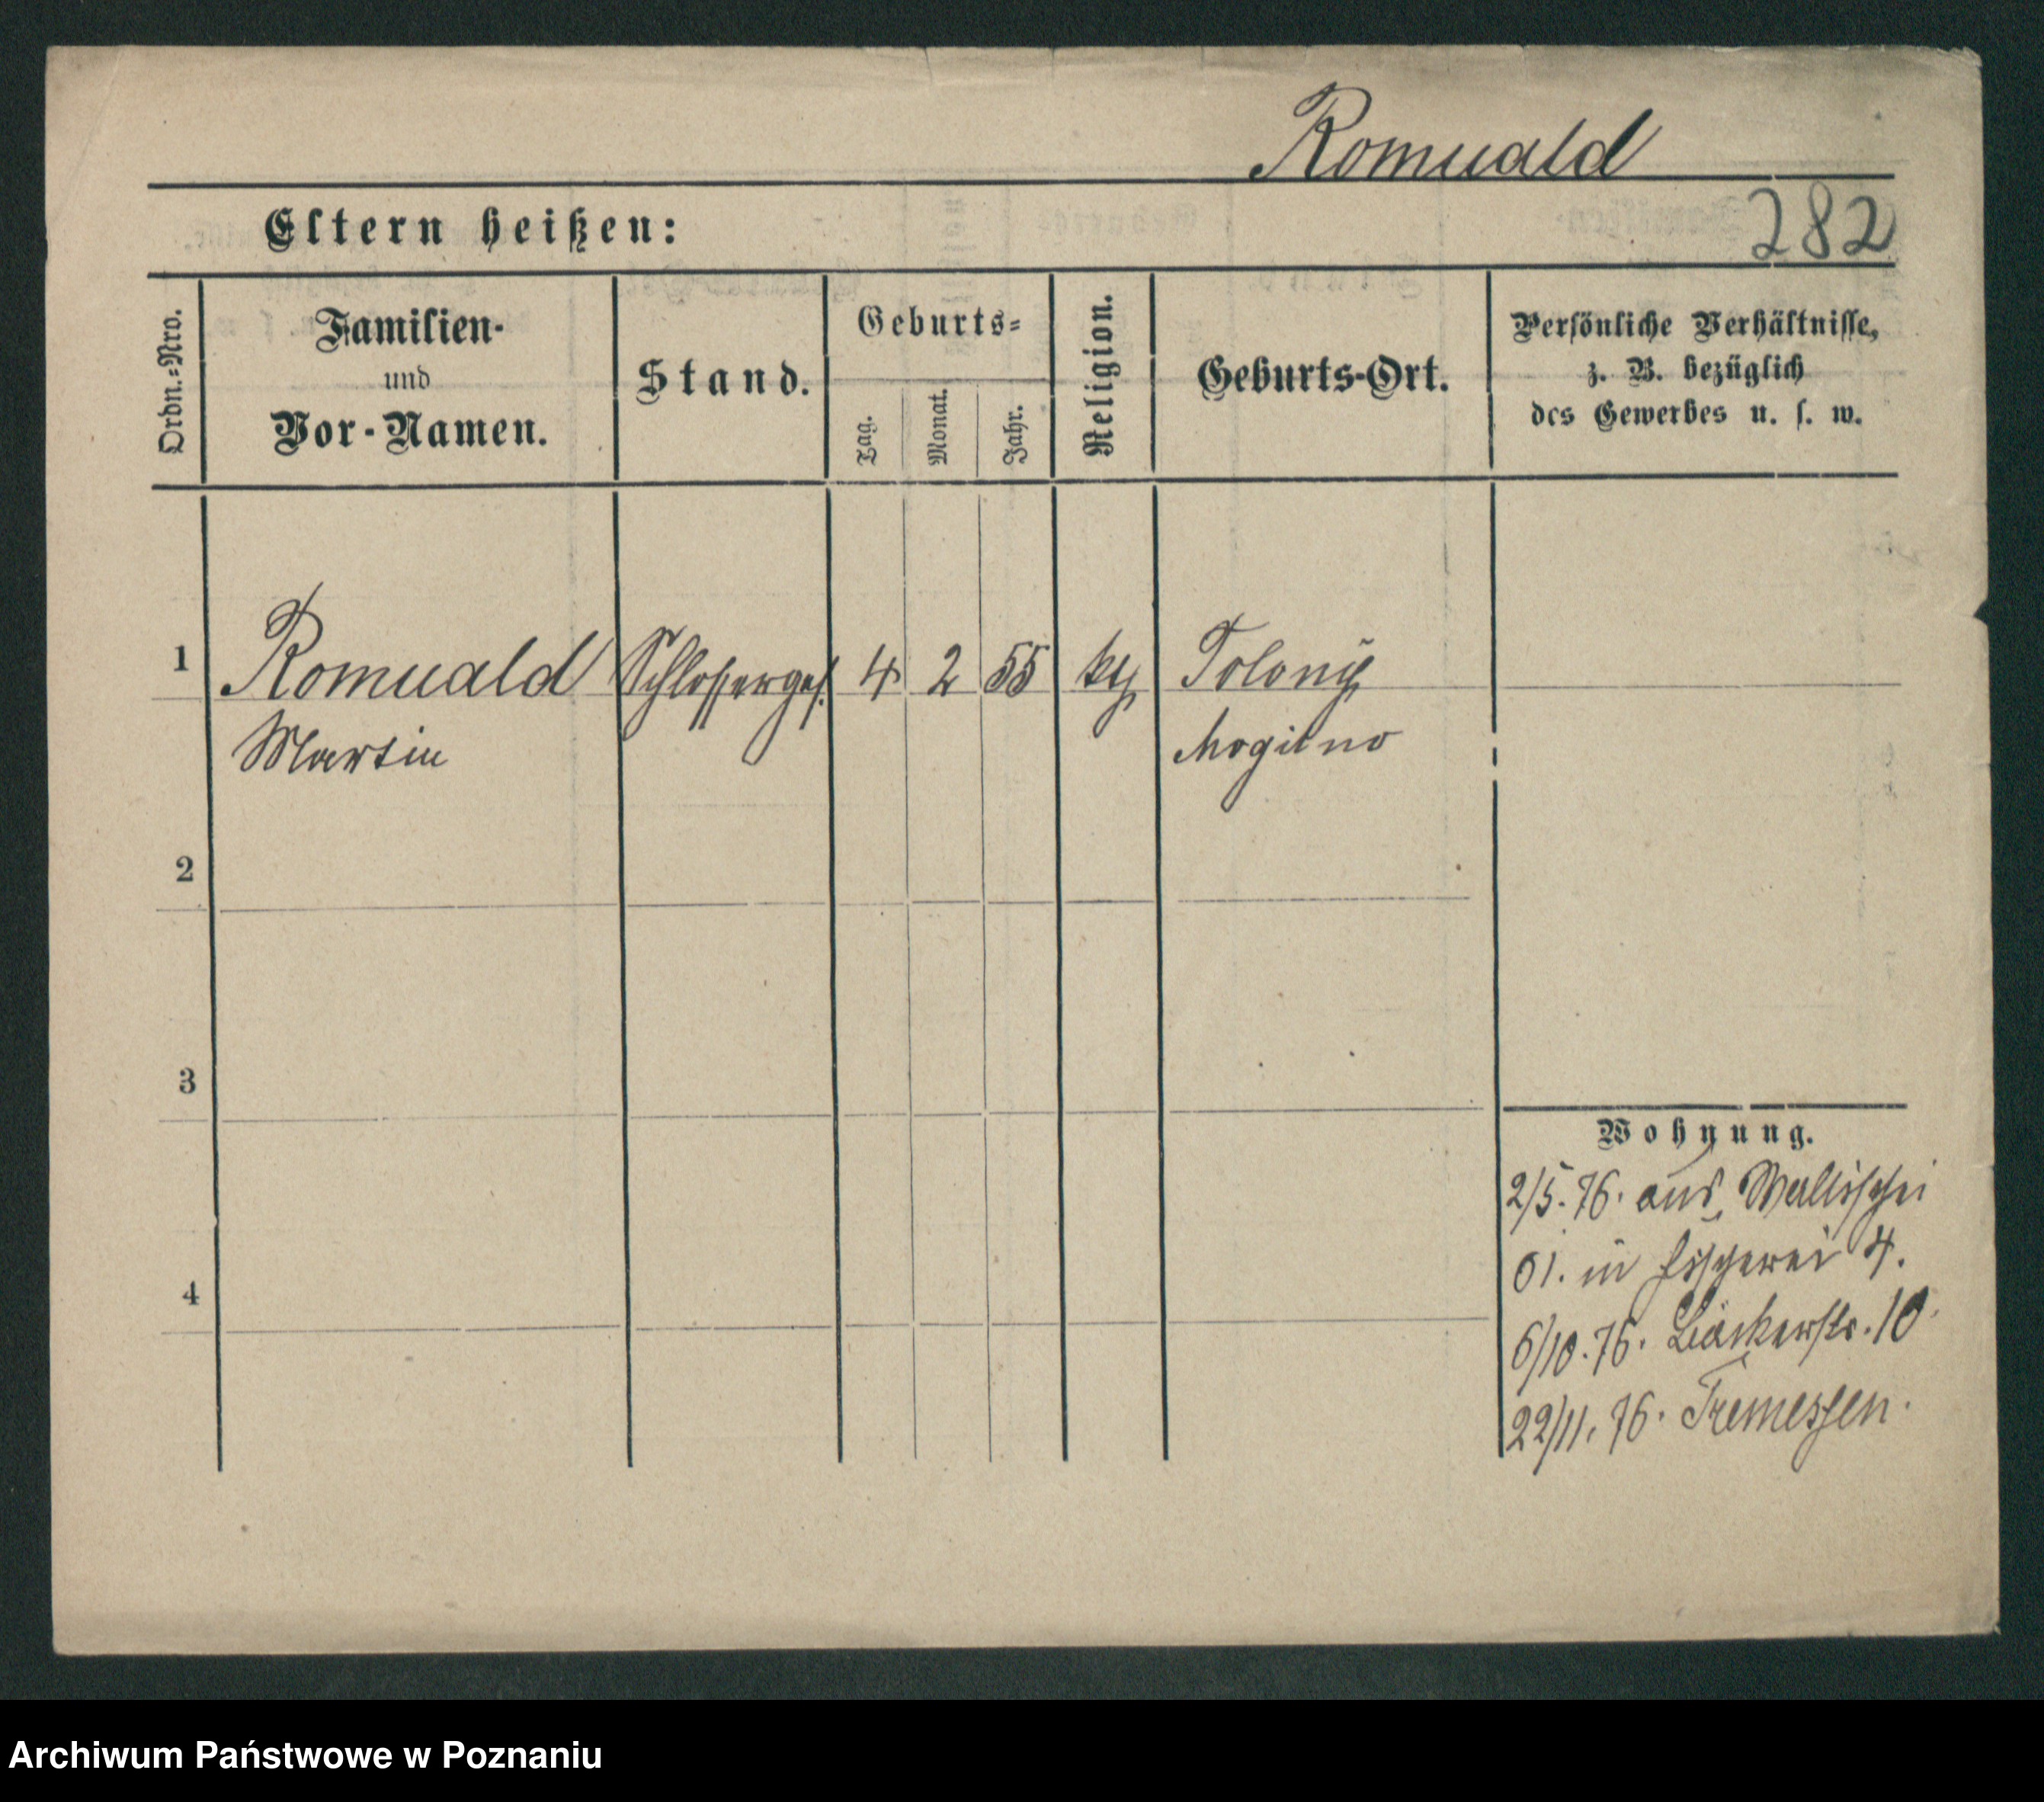 Romuald
Eltern heißen:
282
Ordn.=Nro.
Familien-
und
Vor-Namen.
Stand.
Geburts=
Tag.
Monat.
Jahr.
Religion.
Geburts-Ort.
Persönliche Verhältnisse,
z. B. bezüglich
des Gewerbes u. s. w.
1
Romuald
Schlosserges.
4
2
55
Martin
Mogilno
2
3
4
Wohnung.
2/5. 76. aus Wallischei
61. in Fischerei 4.
6/10. 76. Bäckerstr. 10
22/11. 76. Tremessen.
Archiwum Państwowe w Poznaniu